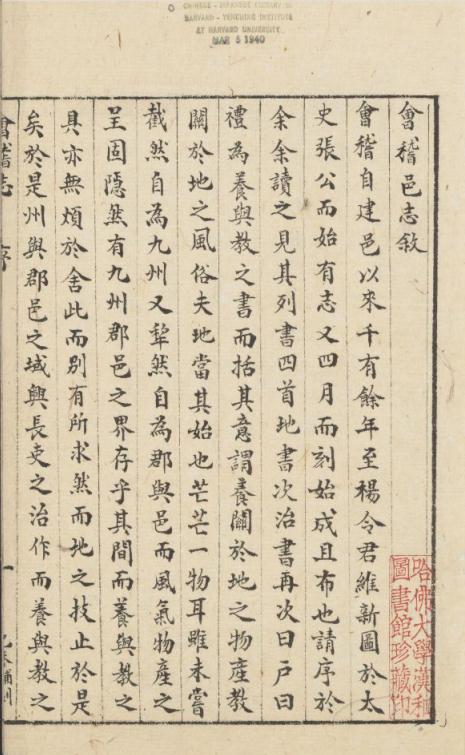 CHINESE - JAPANESE LIBRARY OF
HARVARD - YENCHING INSTITUTE
AT HARVARD UNIVERSITY
MAR 5 1940
會稽邑志敘
會稽自建邑以來千有餘年至楊令君維新圖於太
史張公而始有志又四月而刻始成且布也請序於
余余讀之見其列書四首地書次治書再次曰戶曰
禮為養與教之書而括其意謂養關於地之物產教
關於地之風俗夫地當其始也芒芒一物耳雖未嘗
截然自為九州又犂然自為郡與邑而風氣物產之
呈固隱然有九州郡邑之界存乎其間而養與教之
具亦無煩於舍此而別有所求然而地之技止於是
矣於是州與郡邑之域興長吏之治作而養與教之
會稽志 序 一
哈佛大學漢和
圖書館珍藏印